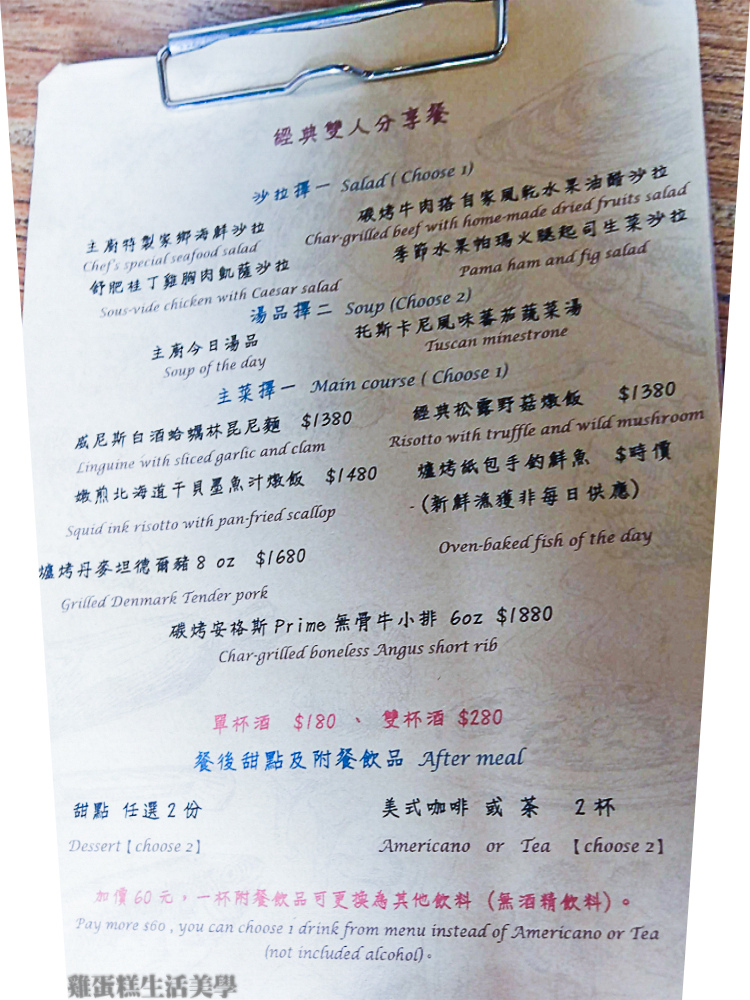 經典雙人分享餐
沙拉擇一 Salad ( Choose 1)
主廚特製家鄉海鮮沙拉
Chef's special seafood salad
碳烤牛肉搭自家風乾水果油醋沙拉
Char-grilled beef with home-made dried fruits salad
舒肥桂丁雞胸肉凱薩沙拉
Sous-vide chicken with Caesar salad
季節水果帕瑪火腿起司生菜沙拉
Pama ham and fig salad
湯品擇二 Soup (Choose 2)
主廚今日湯品
Soup of the day
托斯卡尼風味蕃茄蔬菜湯
Tuscan minestrone
主菜擇一 Main course ( Choose 1)
威尼斯白酒蛤蠣林昆尼麵 $1380
Linguine with sliced garlic and clam
經典松露野菇燉飯 $1380
Risotto with truffle and wild mushroom
嫩煎北海道干貝墨魚汁燉飯 $1480
Squid ink risotto with pan-fried scallop
爐烤紙包手釣鮮魚 $時價
-(新鮮漁獲非每日供應)
Oven-baked fish of the day
爐烤丹麥坦德爾豬8 oz $1680
Grilled Denmark Tender pork
碳烤安格斯Prime無骨牛小排 6oz $1880
Char-grilled boneless Angus short rib
單杯酒 $180 、 雙杯酒 $280
餐後甜點及附餐飲品 After meal
甜點 任選2份
Dessert【choose 2】
美式咖啡 或 茶 2杯
Americano or Tea 【choose 2】
加價60元，一杯附餐飲品可更換為其他飲料 (無酒精飲料)。
Pay more $60 , you can choose 1 drink from menu instead of Americano or Tea
(not included alcohol)。
雞蛋糕生活美學